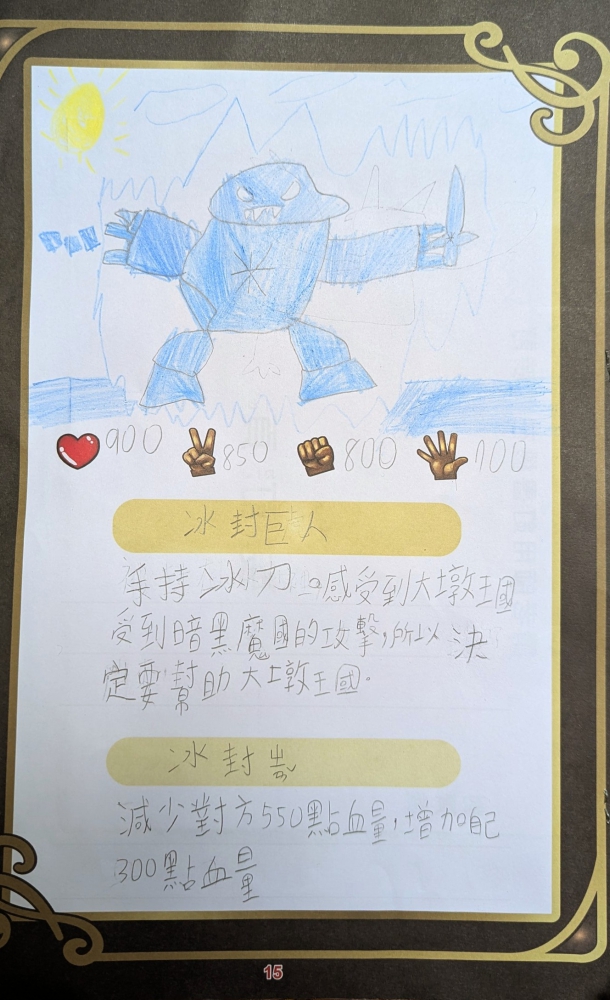 900 850 800 700
冰封巨人
手持冰刀。感受到大墩王國
受到暗黑魔國的攻擊,所以決
定要幫助大墩王國.
冰封
減少對方550點血量,增加自己
300點血量
15